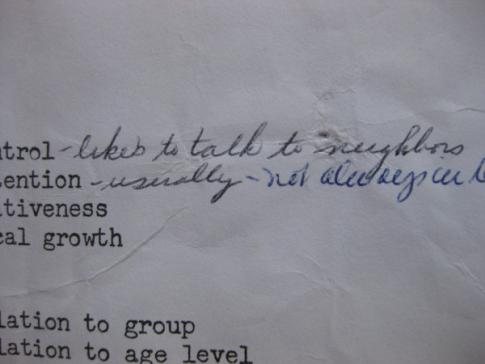 ntrol - likes to talk to neighbors
tention - usually - not always in
itiveness
cal growth
lation to group
lation to age level